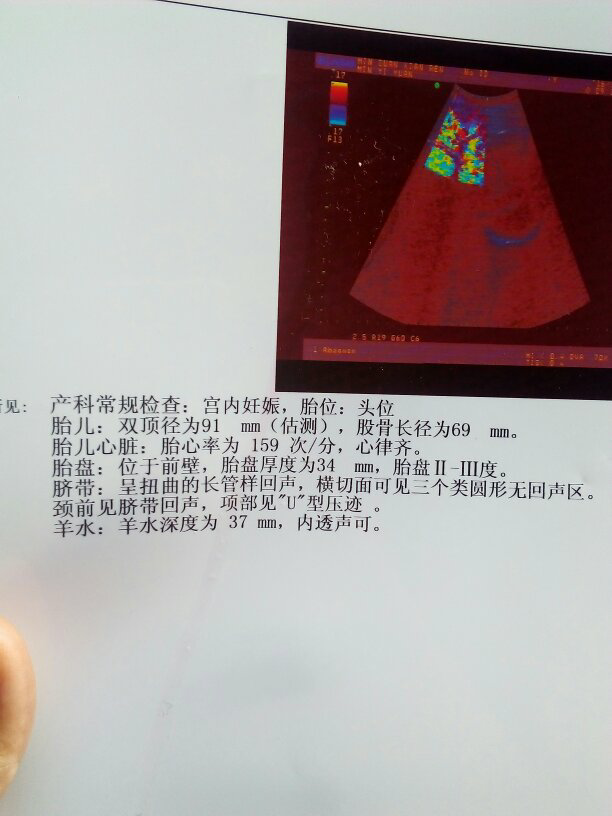 17
17
R13
2.5 R19 G60 C6
见: 产科常规检查: 宫内妊娠, 胎位: 头位
胎儿: 双顶径为91 mm (估测), 股骨长径为69 mm。
胎儿心脏: 胎心率为 159 次/分, 心律齐。
胎盘: 位于前壁, 胎盘厚度为34 mm, 胎盘Ⅱ-Ⅲ度。
脐带: 呈扭曲的长管样回声, 横切面可见三个类圆形无回声区。
颈前见脐带回声, 项部见"U"型压迹 。
羊水: 羊水深度为 37 mm, 内透声可。